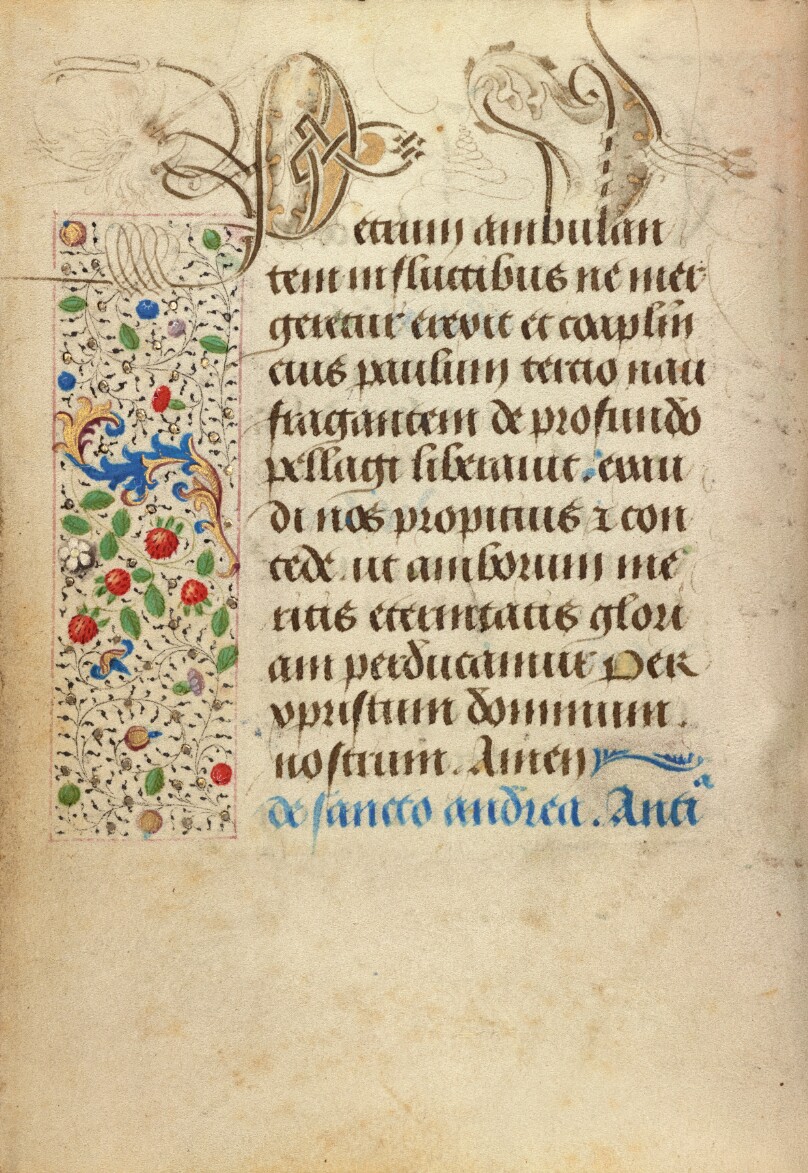 Petrum ambulan
tem in fluctibus ne mer
geretur erexit et coaplm̄
eius paulum tercio nau
fragantem de profundo
pellagi liberauit. exau
di nos propitius ⁊ con
cede ut amborum me
ritis eternitatis glori
am perducamur Per
xpristum dominum.
nostrum. Amen
de sancto andrea. Antiᵃ